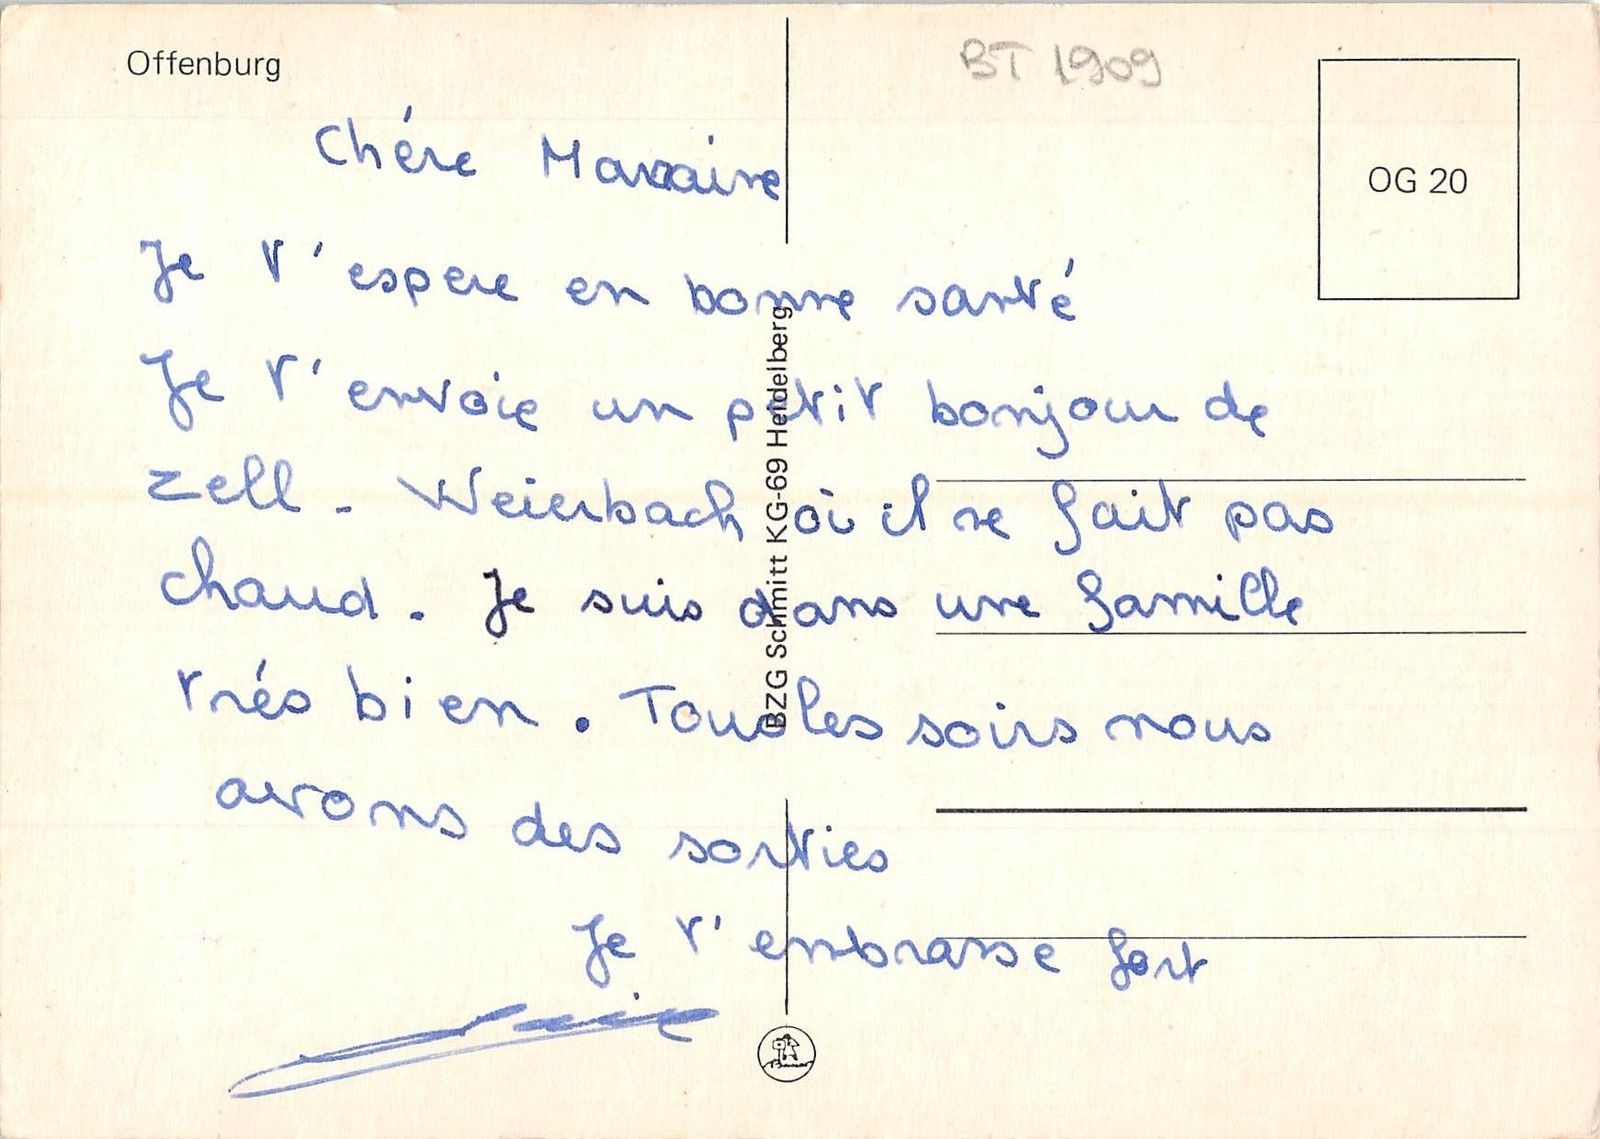 Offenburg
BT 1909
OG 20
Chére
Je t'espere en bonne santé
Je t'envoie un petit bonjour de
Zell - Weierbach où il ne fait pas
chaud. Je suis dans une famille
trés bien. Tous les soirs nous
avons des sorties
Je t'embrasse fort
BZG Schmitt KG-69 Heidelberg